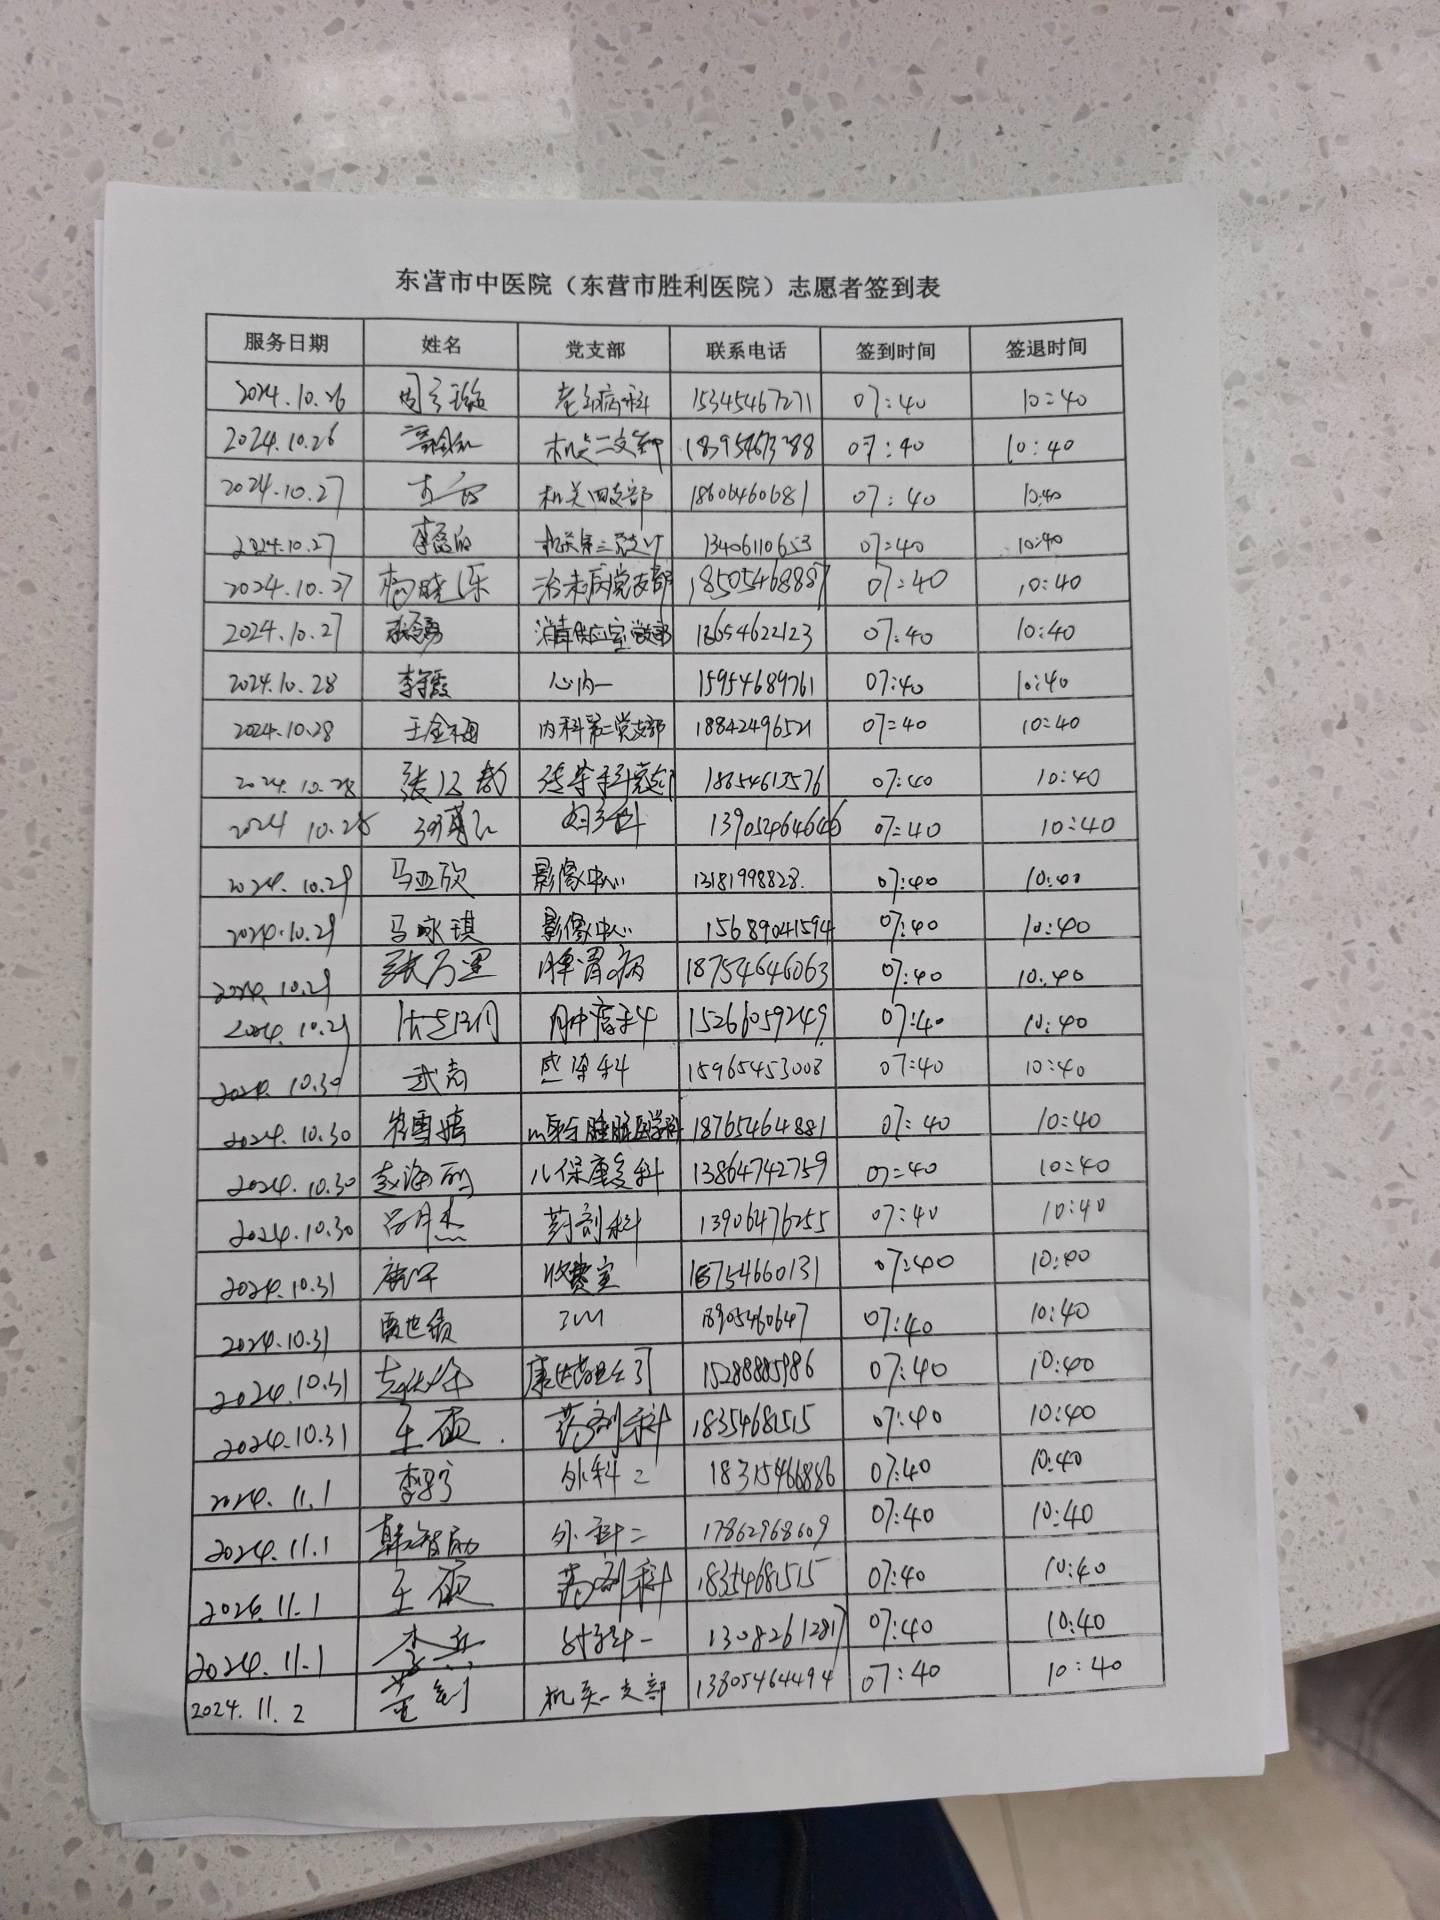 东营市中医院（东营市胜利医院）志愿者签到表
服务日期 姓名 党支部 联系电话 签到时间 签退时间
2024.10.26 老年病科 15345467271 07:40 10:40
2024.10.26 机关二支部 18395467388 07:40 10:40
2024.10.27 机关四支部 18606460681 07:40 10:40
2024.10.27 13406110653 07:40 10:40
2024.10.27 杨晓乐 治未病党支部 18505468887 07:40 10:40
2024.10.27 消毒供应室党支部 18654622123 07:40 10:40
2024.10.28 李霞 心内一 15954689761 07:40 10:40
2024.10.28 王金梅 内科第二党支部 18842496521 07:40 10:40
2024.10.28 07:40 10:40
2024 10.28 妇产科 07:40 10:40
2024.10.29 马亚欣 影像中心 13181998828. 07:40 10:40
2024.10.29 马咏琪 影像中心 15689041594 07:40 10:40
2024.10.29 张万里 脾胃病 18754646063 07:40 10:40
2024.10.29 15266059249 07:40 10:40
2024.10.30 武尚 感染科 15965453008 07:40 10:40
2024.10.30 18765464881 07:40 10:40
2024.10.30 赵海丽 儿保康复科 13864742759 07:40 10:40
2024.10.30 吕月杰 药剂科 13906476255 07:40 10:40
2024.10.31 收费室 18754660131 07:40 10:40
2024.10.31 18905460647 07:40 10:40
2024.10.31 15288885986 07:40 10:40
2024.10.31 王硕 药剂科 18354681515 07:40 10:40
2024.11.1 外科二 18315466886 07:40 10:40
2024.11.1 韩智励 外科二 17862968609 07:40 10:40
2024.11.1 王硕 药剂科 18354681515 07:40 10:40
2024.11.1 13082612817 07:40 10:40
2024.11.2 董剑 机关一支部 13805464494 07:40 10:40